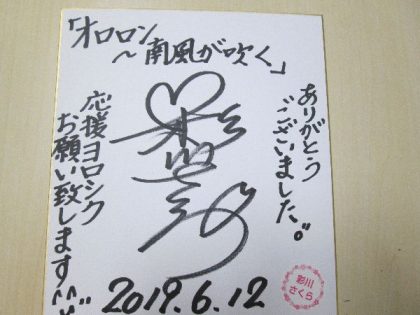 「オロロン
～南風が吹く」
ありがとう
ございました。
応援ヨロシク
お願い致します
2019.6.12
彩川
さくら